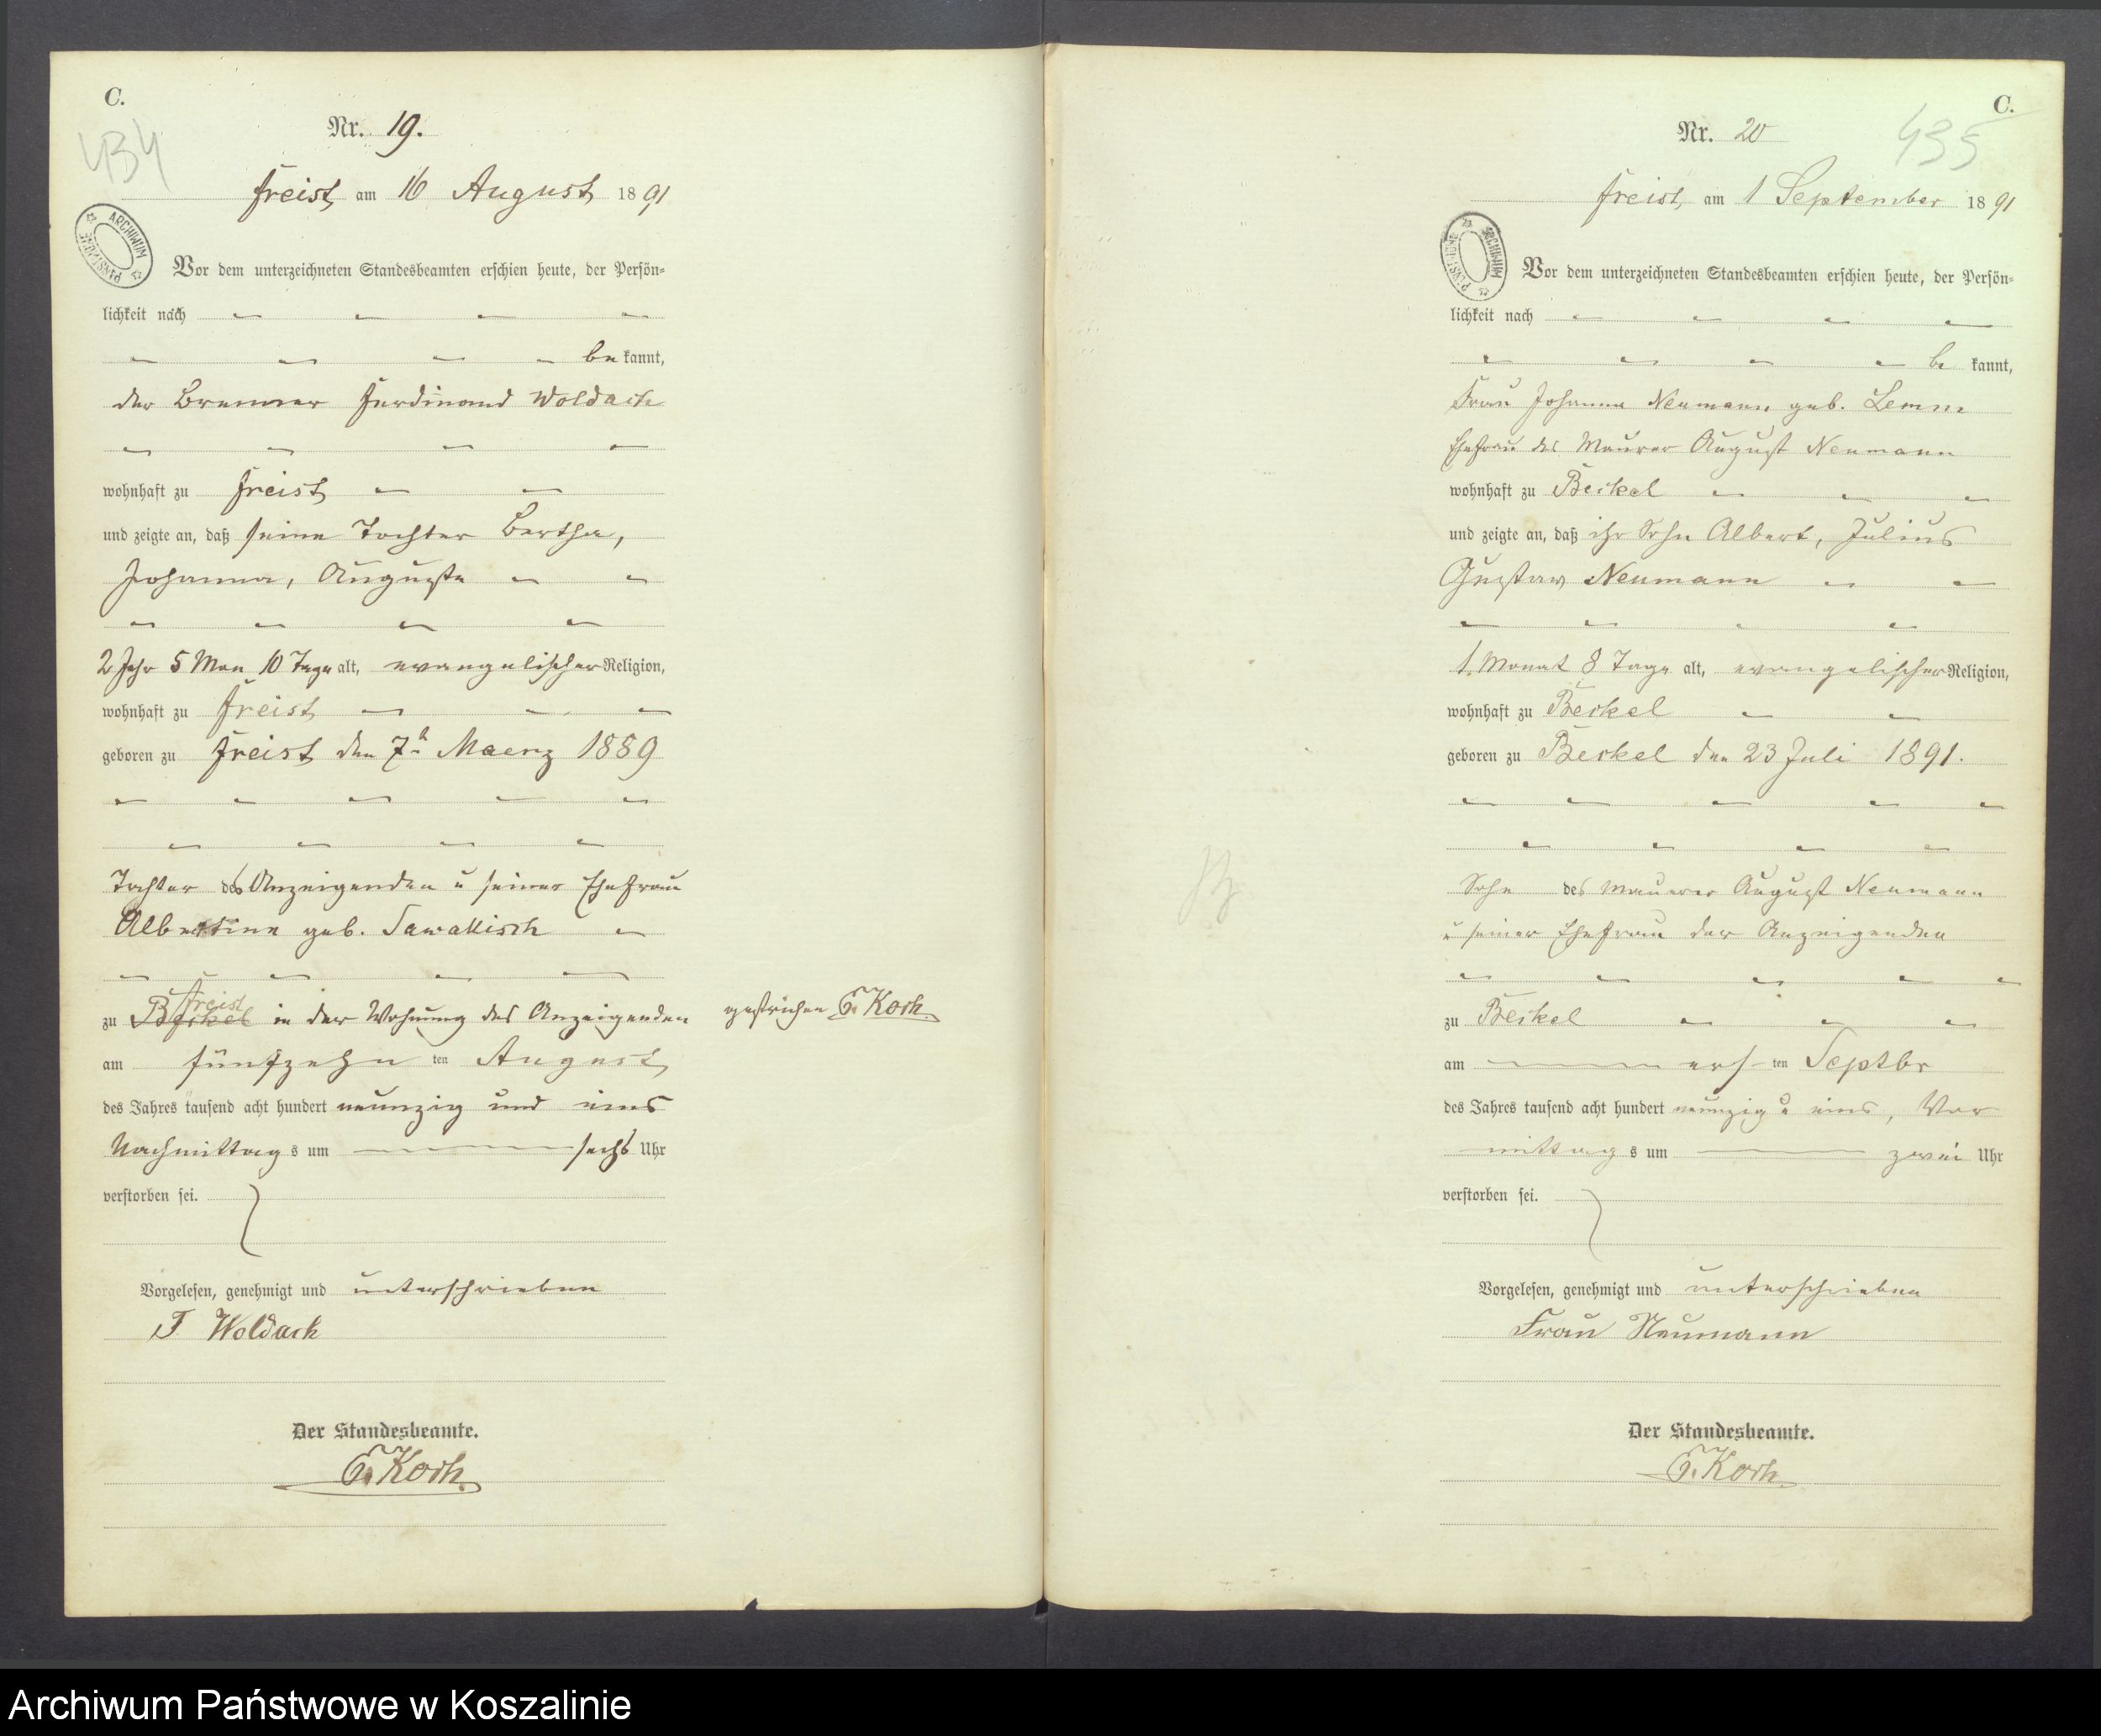 C.
434
Nr. 19.
Freist, am 16 August 1891
ARCHIWUM PAŃSTWOWE
Vor dem unterzeichneten Standesbeamten erschien heute, der Persön-
lichkeit nach
be kannt,
der Brenner Ferdinand Woldach
wohnhaft zu Freist
und zeigte an, daß seine Tochter Bertha,
Johanna, Auguste
2 Jahr 5 Mon 10 Tage alt, evangelischer Religion,
wohnhaft zu Freist
geboren zu Freist den 7 Maerz 1889
Tochter des Anzeigenden u seiner Ehefrau
Albertine geb. Sawallisch
Freist
zu Beskel in der Wohnung des Anzeigenden gestrichen G. Koch
am fünfzehn ten August
des Jahres tausend acht hundert neunzig und eins
Nachmittag s um sechs Uhr
verstorben sei.
Vorgelesen, genehmigt und unterschrieben
F Woldach
Der Standesbeamte.
G. Koch
C.
435
Nr. 20
Freist, am 1 September 1891
ARCHIWUM PAŃSTWOWE
Vor dem unterzeichneten Standesbeamten erschien heute, der Persön-
lichkeit nach
be kannt,
Frau Johanna Neumann geb. Lemm
Ehefrau des Maurer August Neumann
wohnhaft zu Beskel
und zeigte an, daß ihr Sohn Albert, Julius
Gustav Neumann
1 Monat 8 Tage alt, evangelischer Religion,
wohnhaft zu Beskel
geboren zu Beskel den 23 Juli 1891.
Sohn des Maurer August Neumann
u seiner Ehefrau der Anzeigenden
zu Beskel
am ers ten Septbr
des Jahres tausend acht hundert neunzig u eins, Vor
mittag s um zwei Uhr
verstorben sei.
Vorgelesen, genehmigt und unterschrieben
Frau Neumann
Der Standesbeamte.
G. Koch
Archiwum Państwowe w Koszalinie